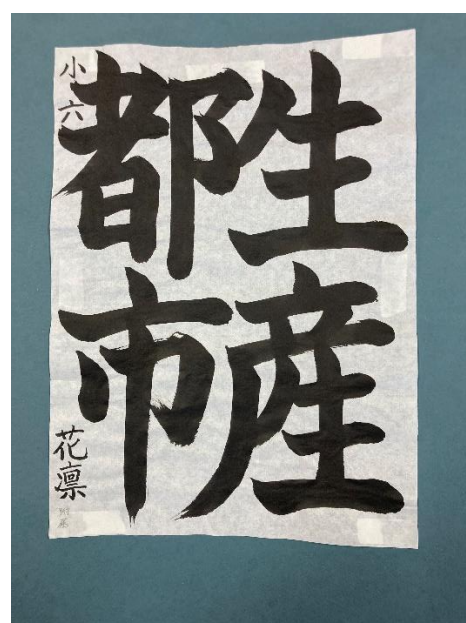 生産
都市
小六
花凛